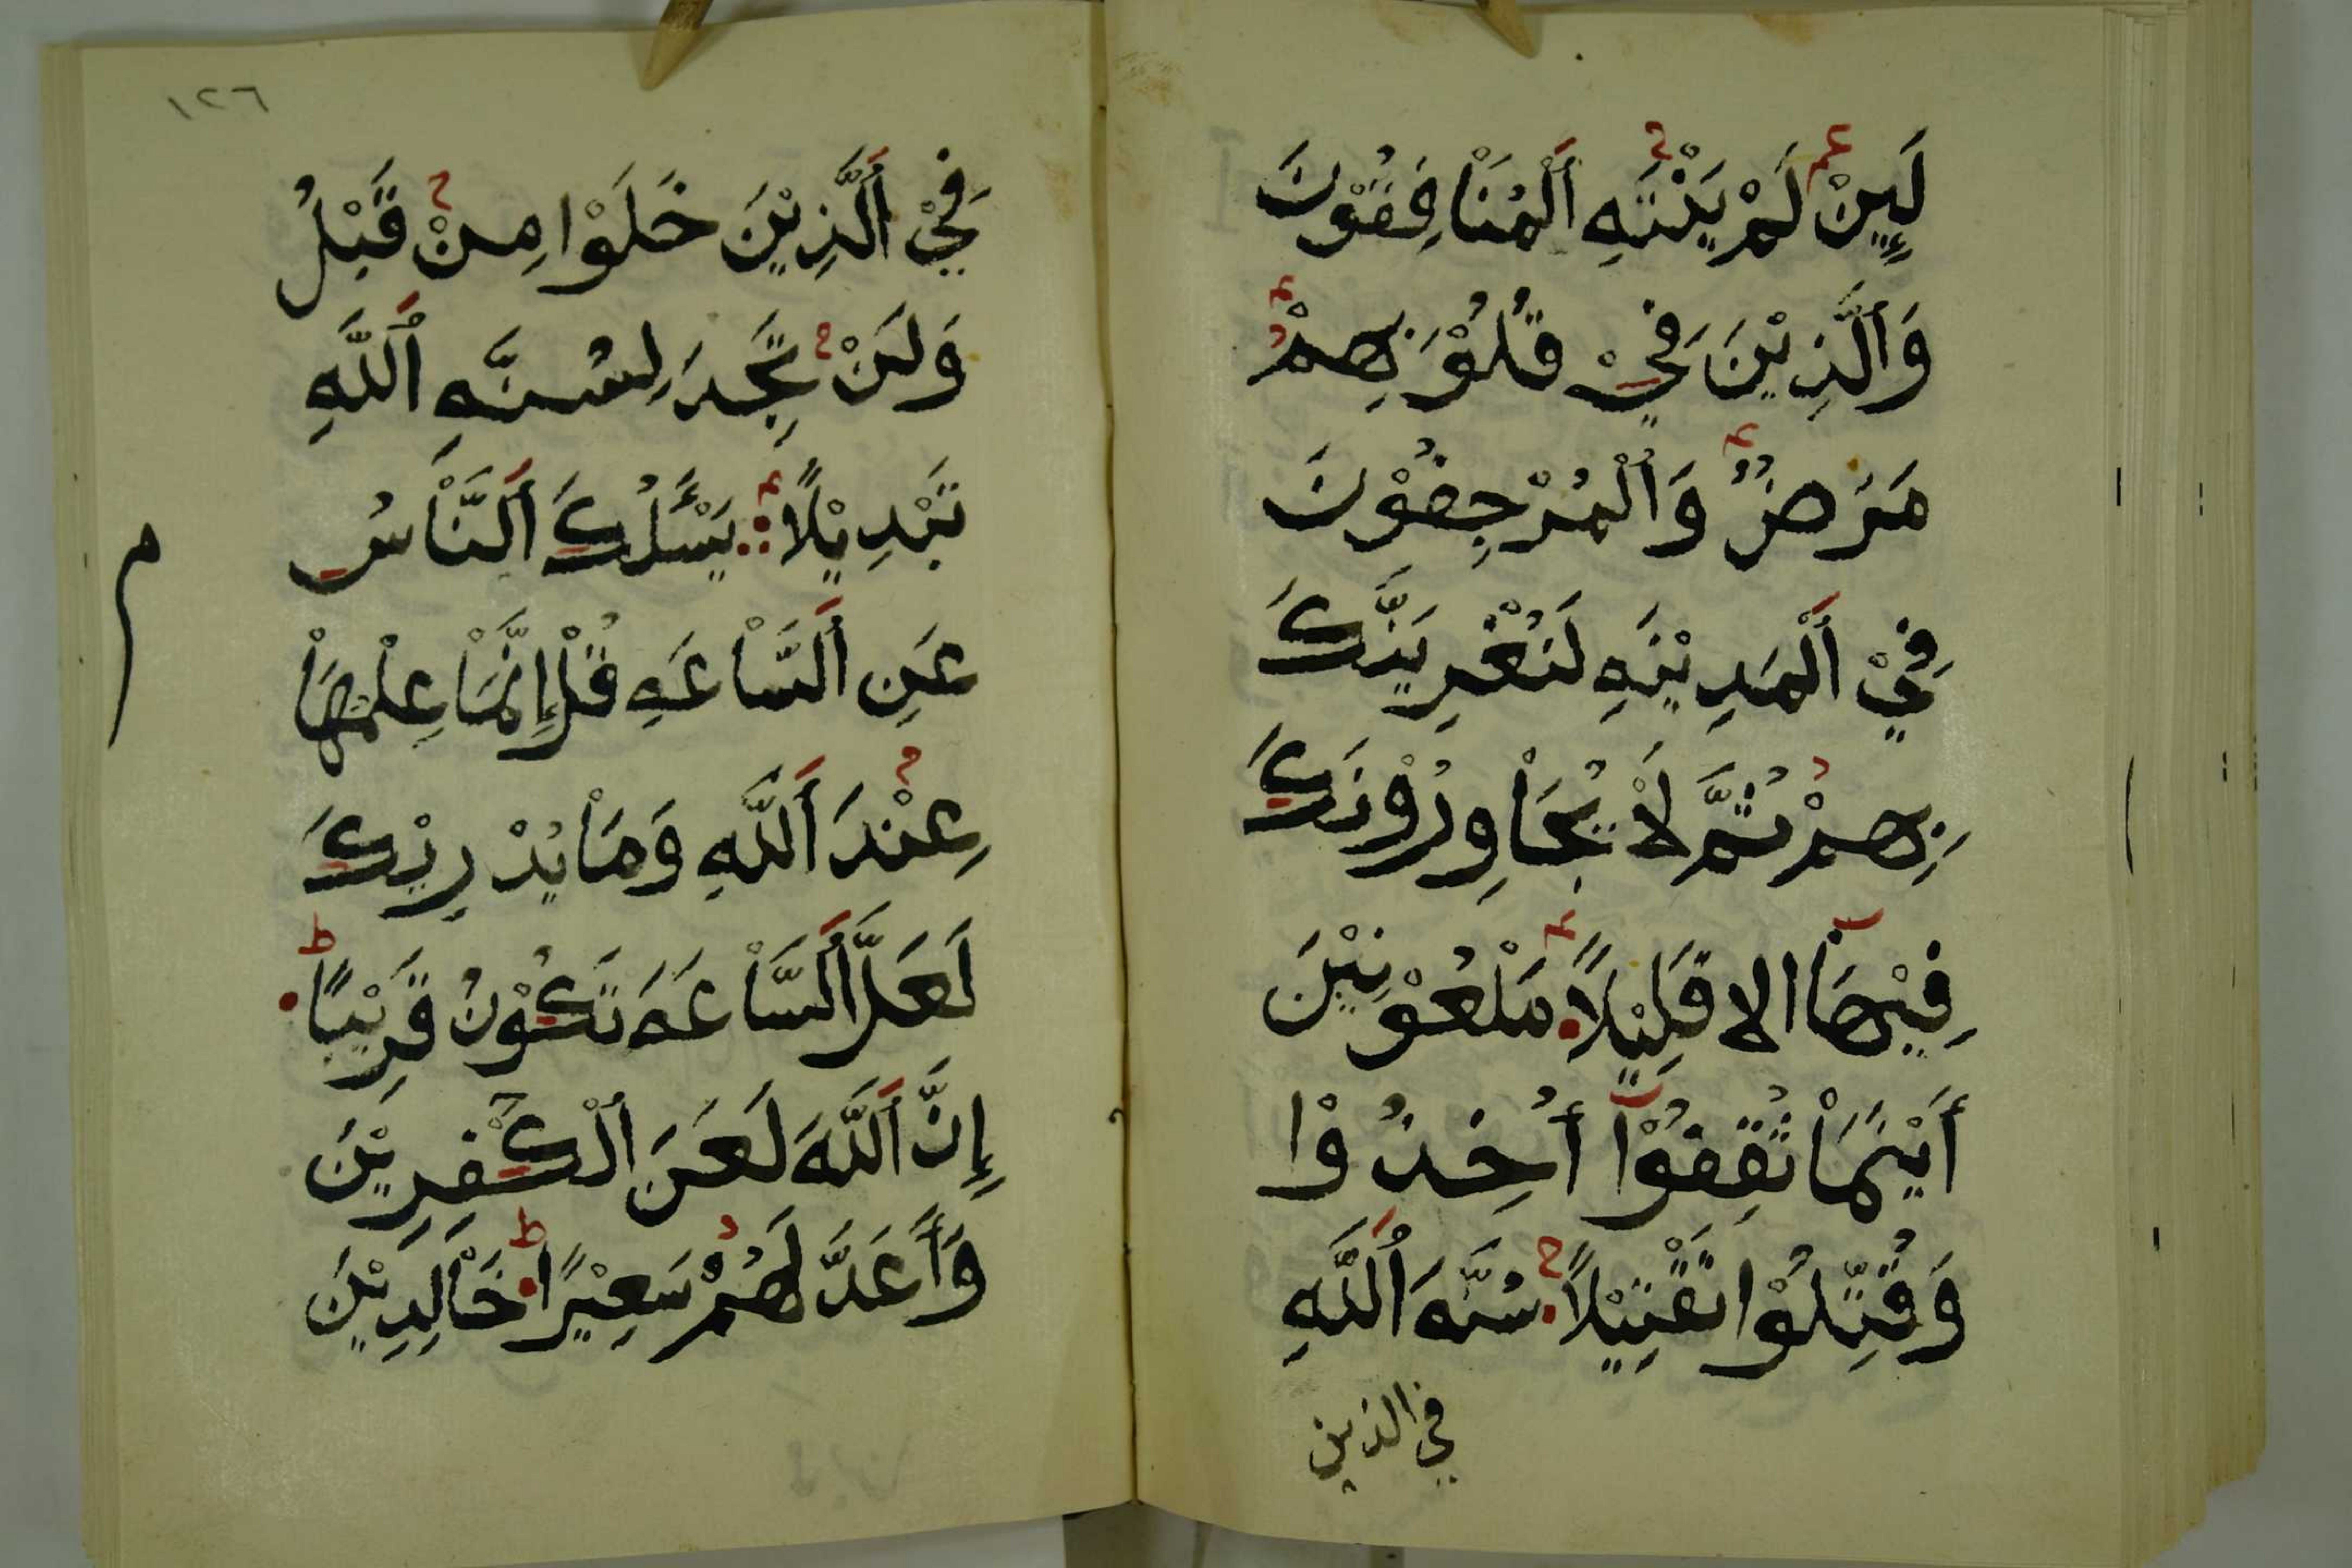 لَئِنْ لَمْ يَنْتَهِ ٱلْمُنَافِقُوْنَ
وَٱلَّذِيْنَ فِيْ قُلُوْبِهِمْ
مَرَضٌ وَٱلْمُرْجِفُوْنَ
فِيْ ٱلْمَدِيْنَهِ لَنُغْرِيَنَّكَ
بِهِمْ ثُمَّ لَاْ يُجَاْوِرُوْنَكَ
فِيْهَآ الا قَلِيْلًا مَلْعُوْنِيْنَ
أَيْنَمَاْ ثُقِفُوْآ أُخِذُوْا
وَقُتِّلُوْا تَقْتِيْلًا سُنَّهَ ٱللَّهِ
في الذين
١٢٦
فِيْ ٱلَّذِيْنَ خَلَوْا مِنْ قَبْلُ
وَلَنْ تَجِدَ لِسُنَّهِ ٱللَّهِ
تَبْدِيْلًا يَسْـَٔلُكَ ٱلنَّاْسُ
عَنِ ٱلسَّاْعَهِ قُلْ إِنَّمَاْ عِلْمُهَاْ
عِنْدَ ٱللَّهِ وَمَاْ يُدْرِيْكَ
لَعَلَّ ٱلسَّاْعَهَ تَكُوْنُ قَرِيْبًا
إِنَّ ٱللَّهَ لَعَنَ ٱلْكَٰفِرِيْنَ
وَأَعَدَّ لَهُمْ سَعِيْرًا خَاْلِدِيْنَ
م